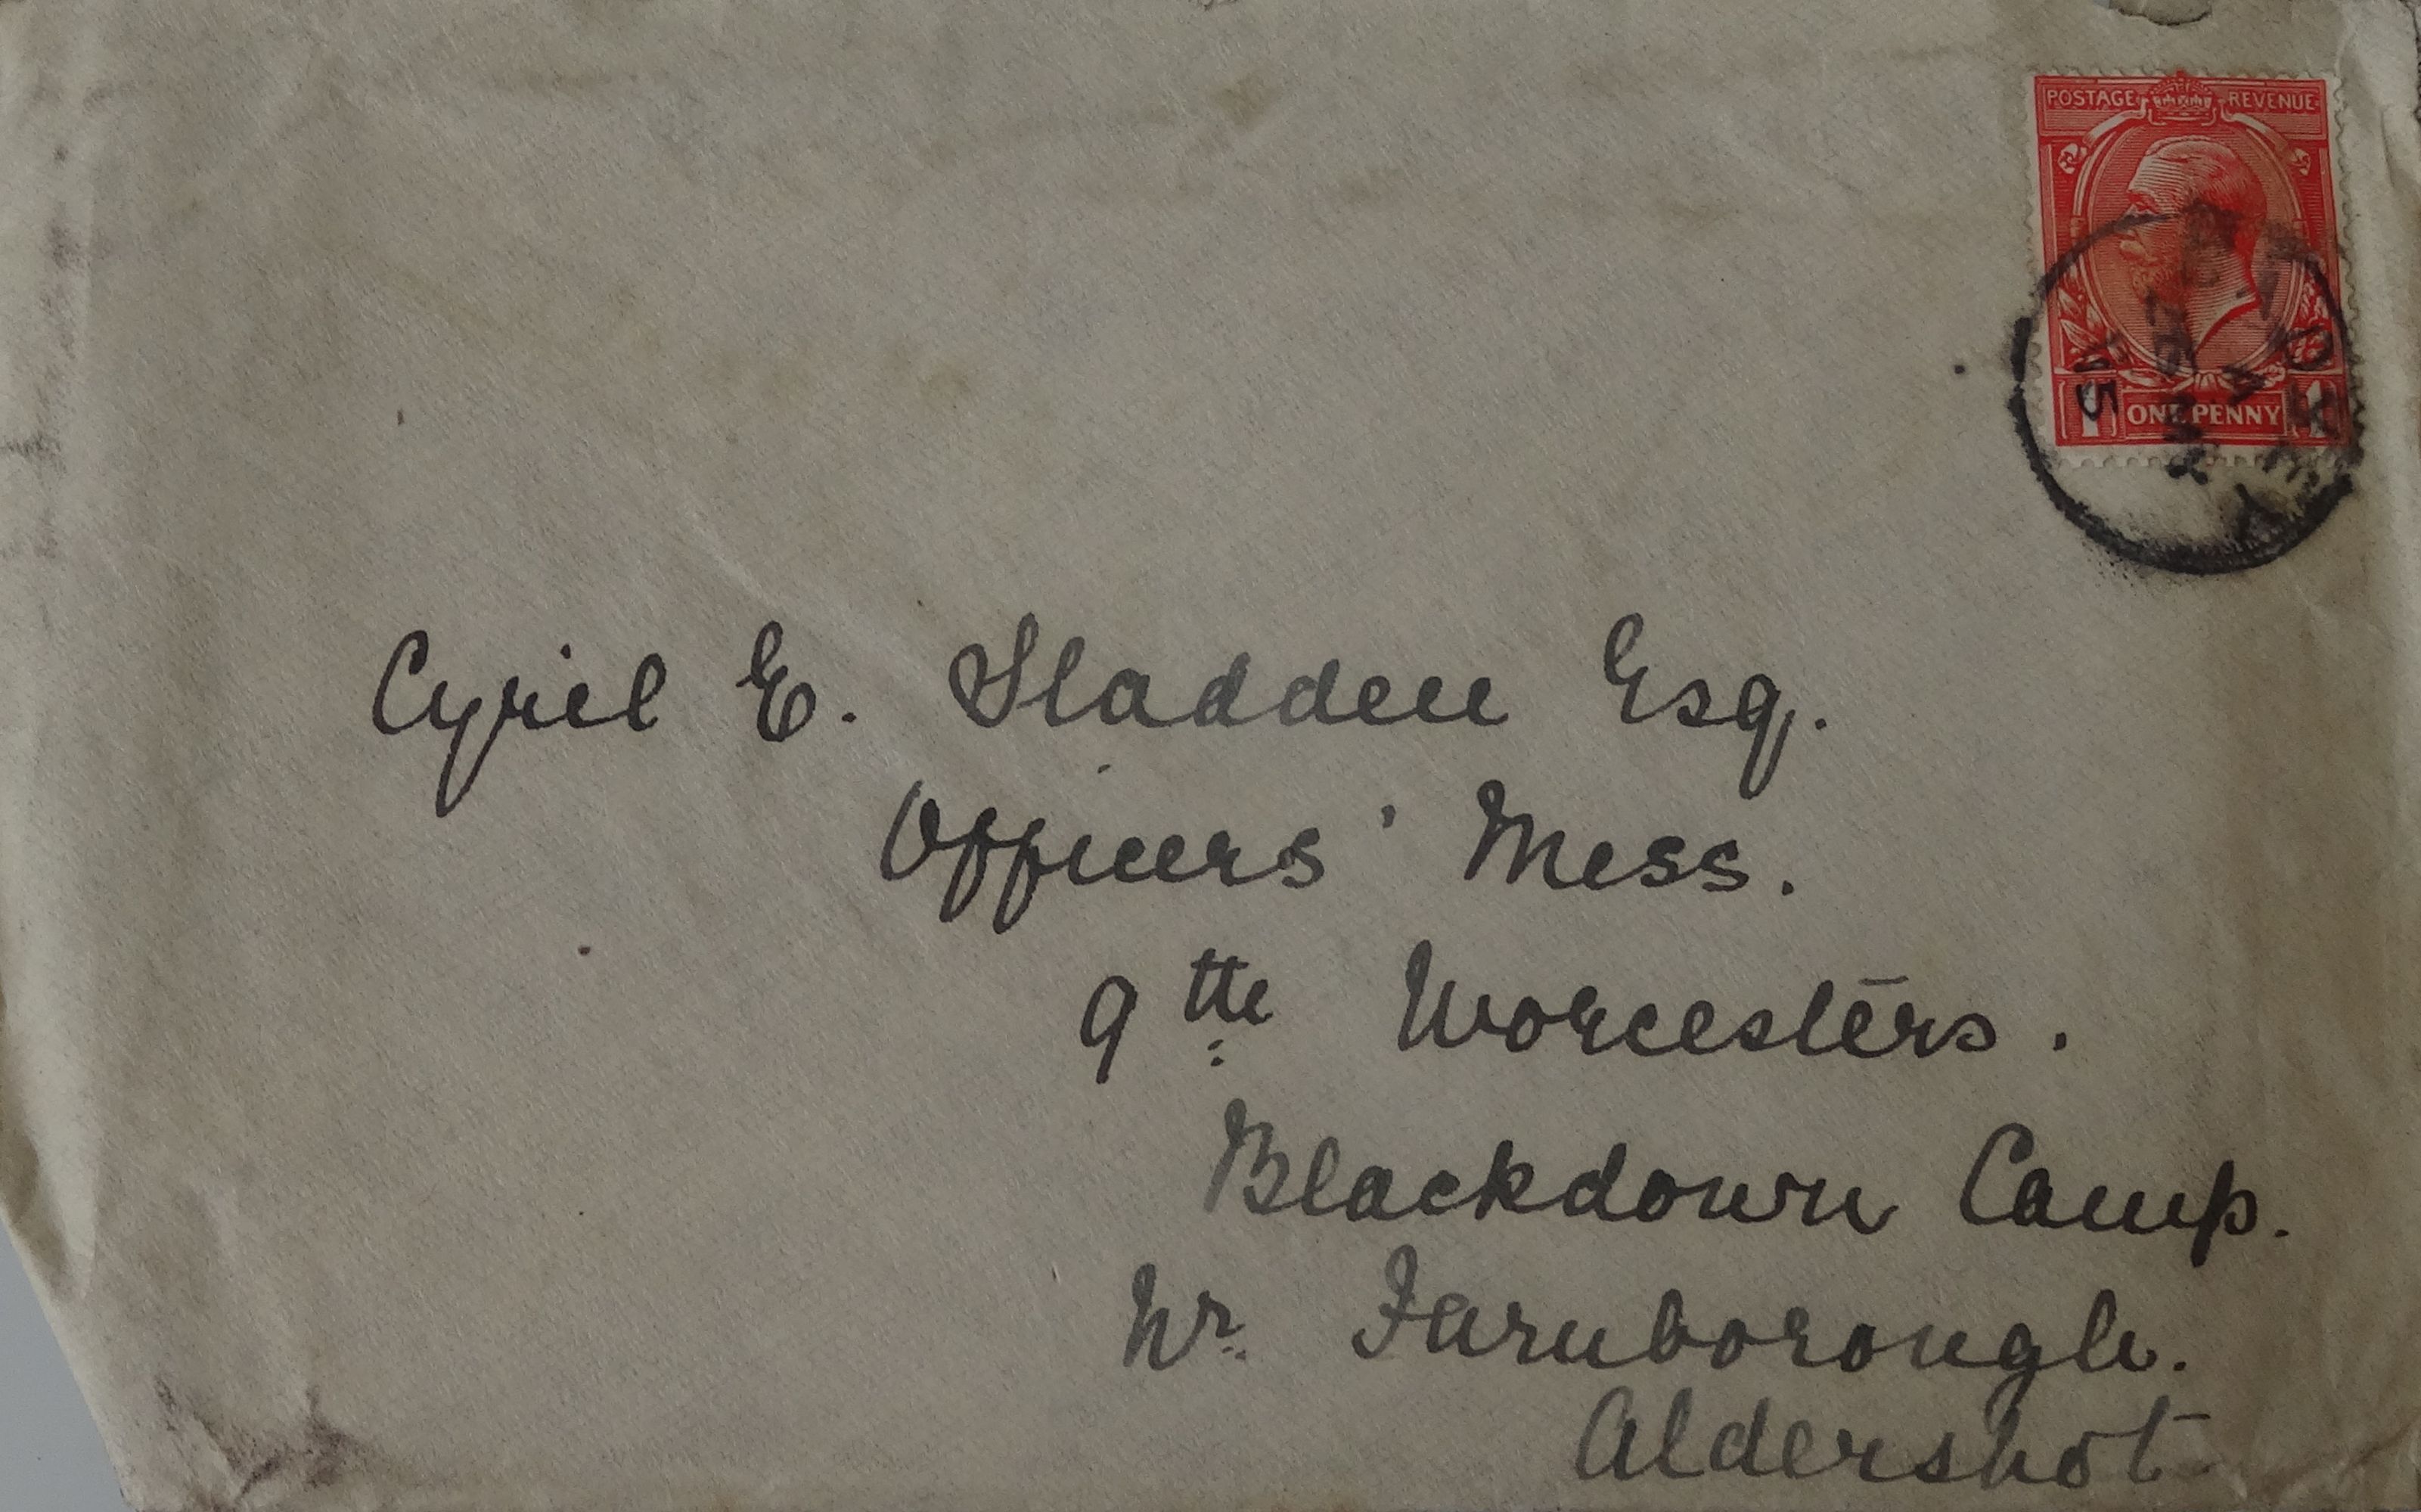 POSTAGE REVENUE
1 ONE PENNY 1
15
Cyril E. Sladden Esq.
Officers' Mess.
9th Worcesters.
Blackdown Camp.
Nr. Farnborough.
Aldershot